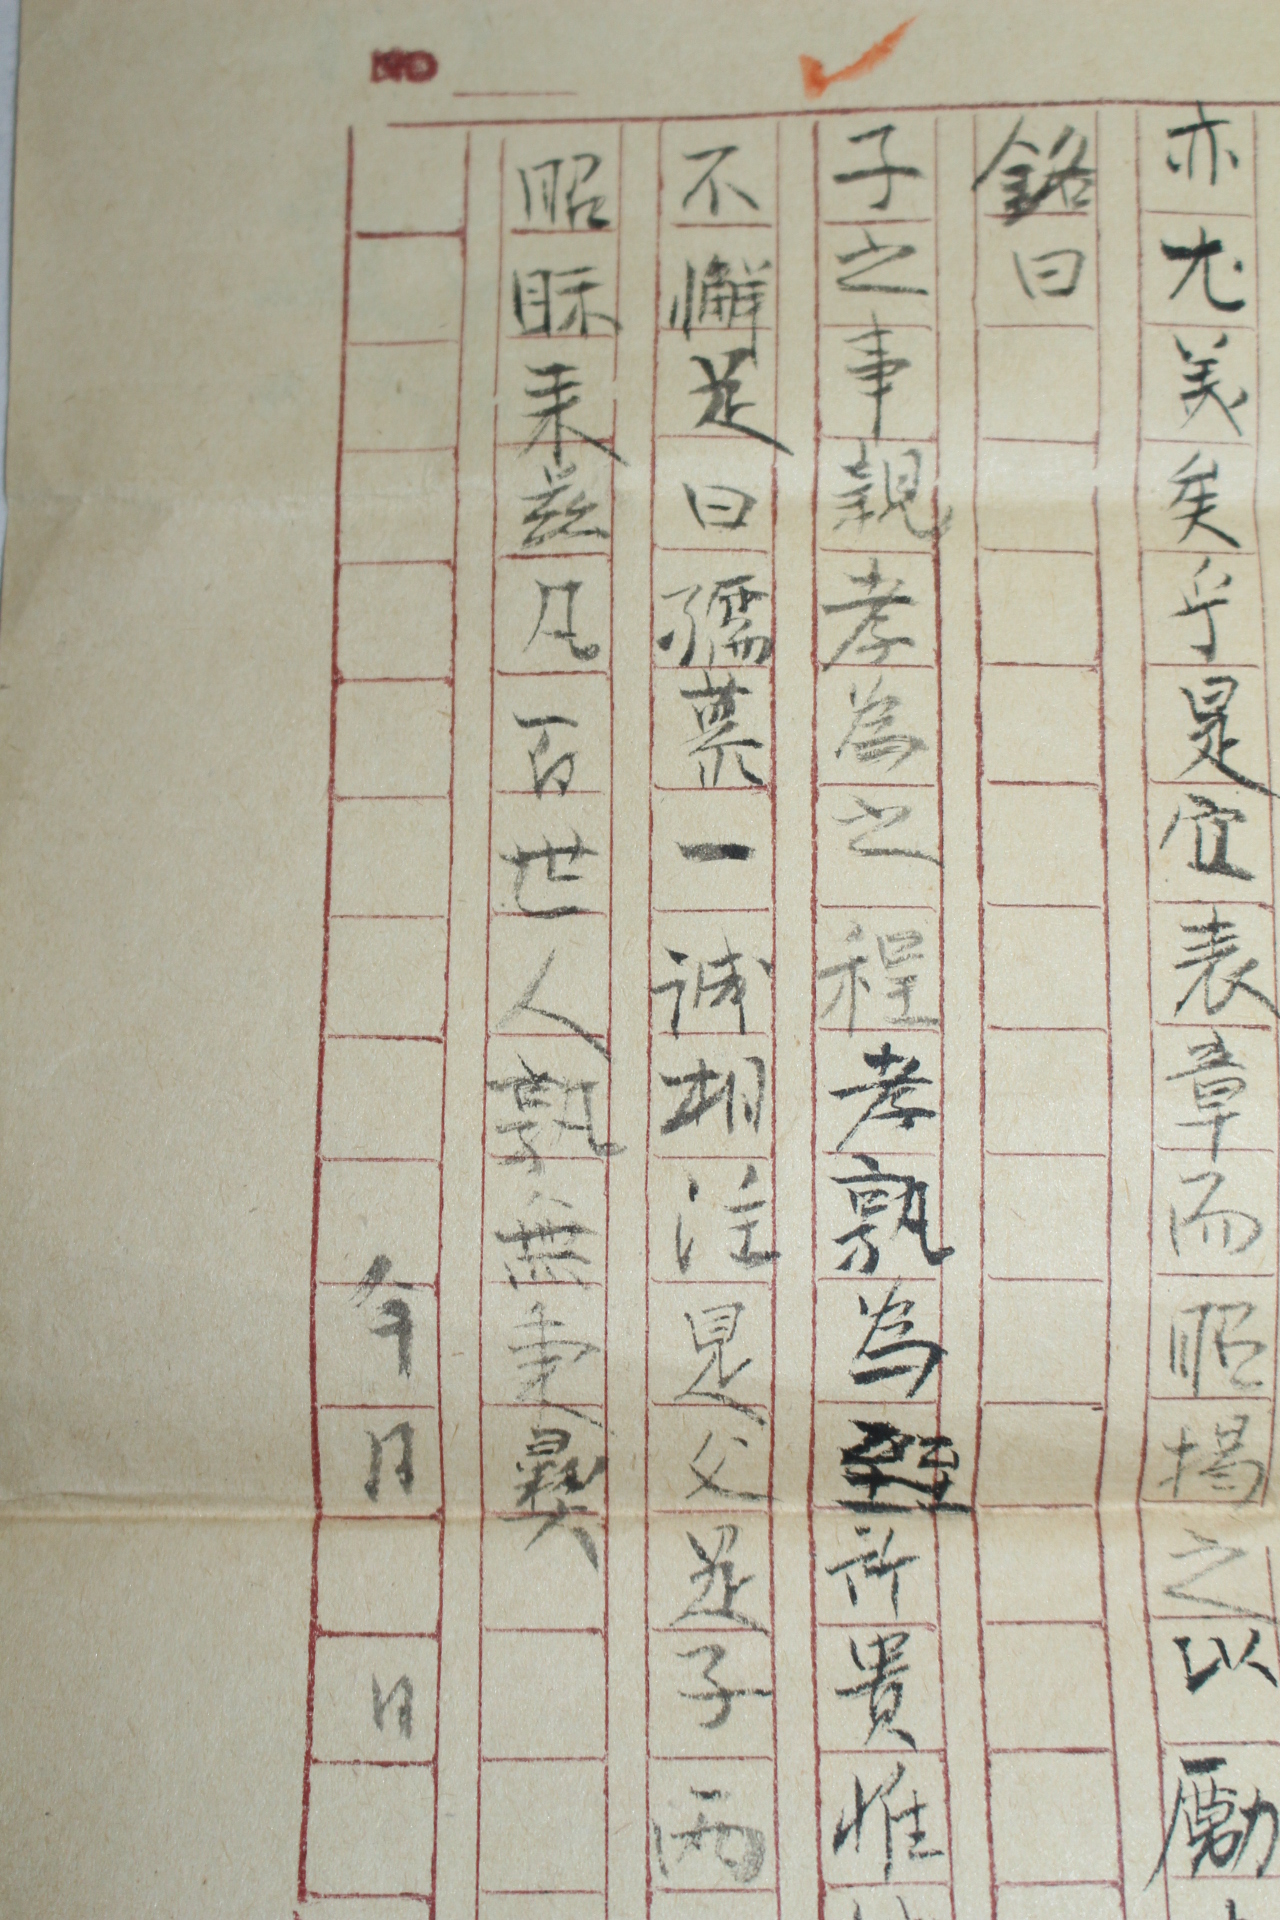 NO
亦尤美矣乎是宜表章而昭揭之以勵
銘曰
子之事親孝為之程孝孰為至所貴惟
不懈是曰孺慕一誠相注是父是子兩
昭眎来茲凡百世人孰無秉彝
年月 日